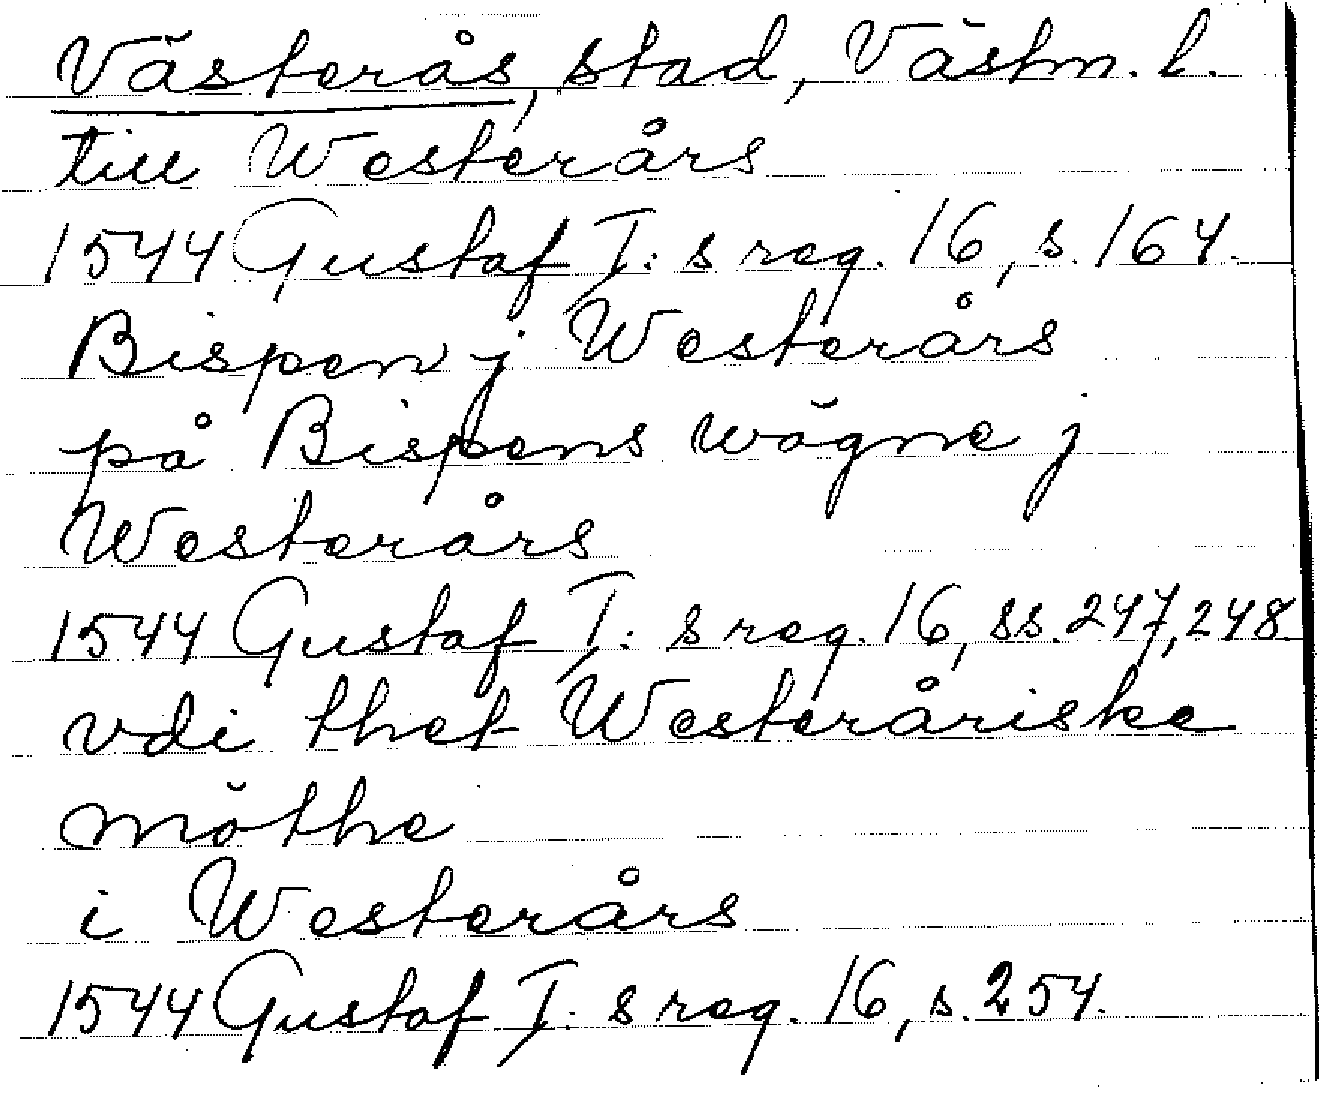 Västerås, stad, Västm. l.
till Westerårs
1544 Gustaf I: s reg. 16, s. 164.
Bispen j Westerårs
på Bispens wägne j
Westerårs
1544 Gustaf I: s reg. 16, ss. 247, 248
vdi thet Westeråriske
möthe
i Westerårs
1544 Gustaf I: s reg. 16, s. 254.